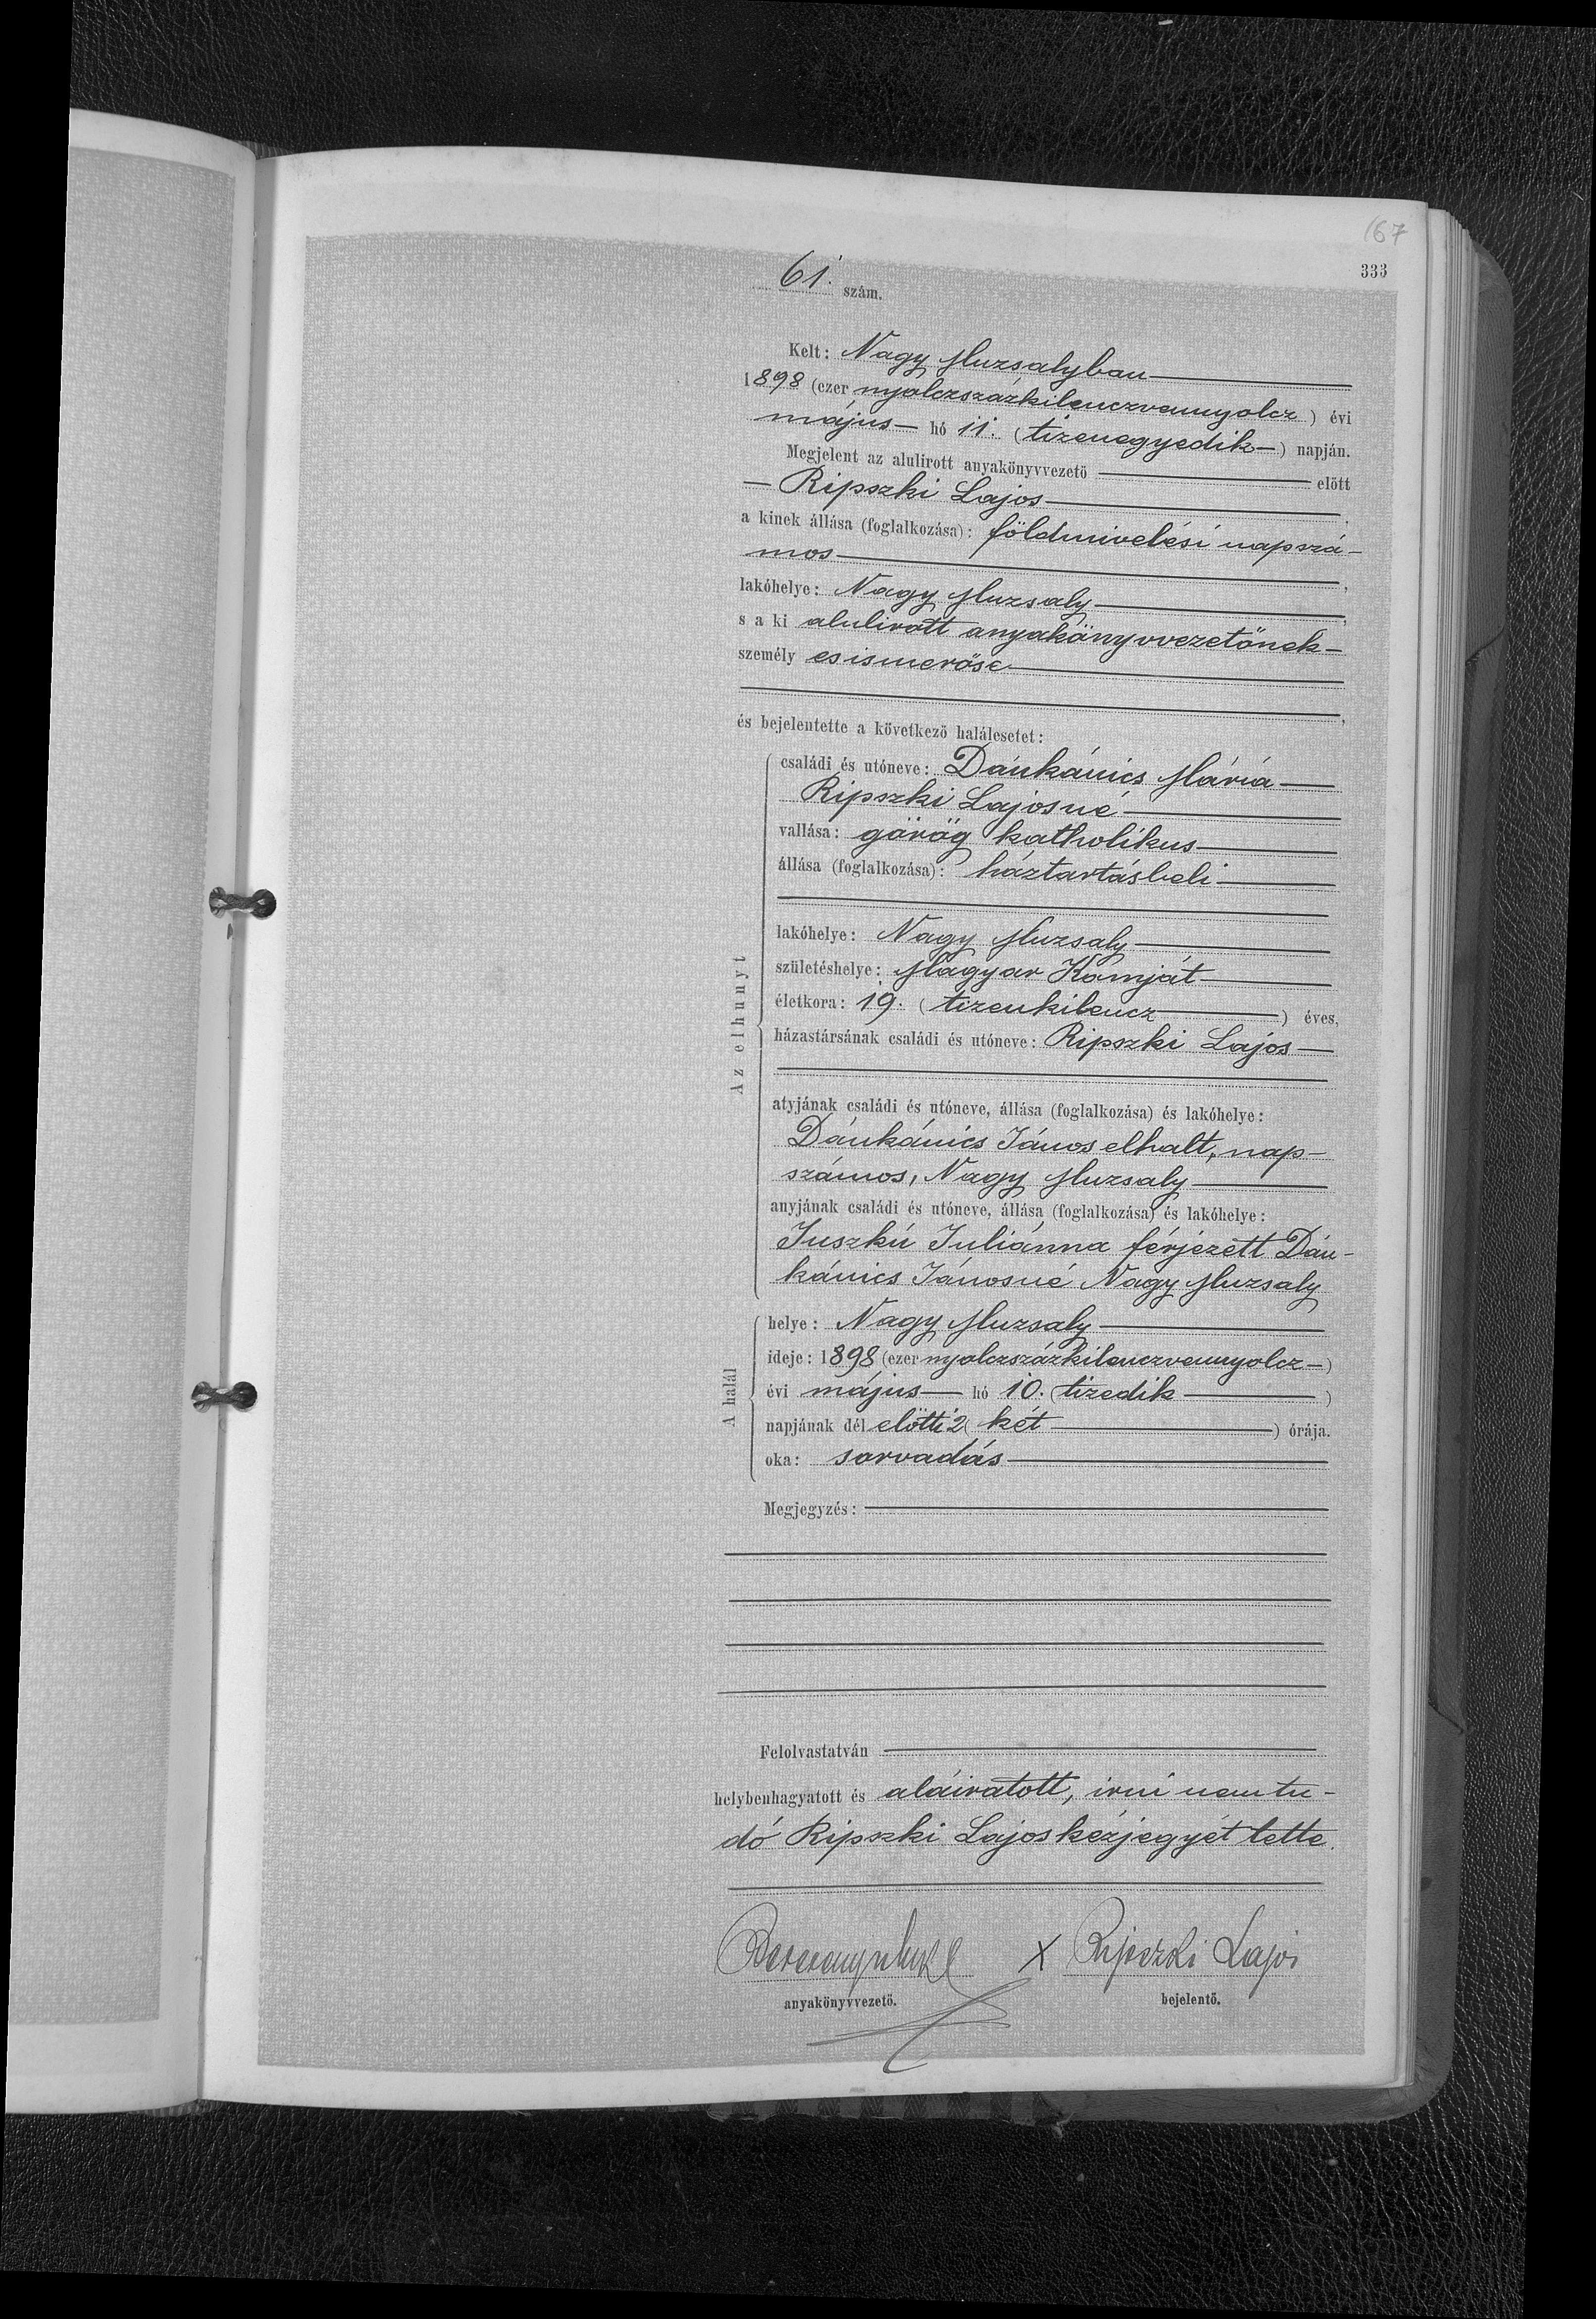 167
333
61. szám.
Kelt: Nagy Muzsalyban
1898 (ezer nyolczszázkilenczvennyolcz) évi
május hó 11. (tizenegyedik) napján.
Megjelent az alulirott anyakönyvvezető előtt
Ripszki Lajos,
a kinek állása (foglalkozása): földmivelési napszá-
mos,
lakóhelye: Nagy Muzsaly,
s a ki alulirott anyakönyvvezetőnek
személyesismerőse
,
és bejelentette a következő halálesetet:
Az elhunyt
családi és utóneve: Dánkánics Mária
Ripszki Lajosné
vallása: görög katholikus
állása (foglalkozása): háztartásbeli
lakóhelye: Nagy Muzsaly
születéshelye: Magyar Komját
életkora: 19. (tizenkilencz) éves,
házastársának családi és utóneve: Ripszki Lajos
atyjának családi és utóneve, állása (foglalkozása) és lakóhelye:
Dánkánics János elhalt, nap-
számos, Nagy Muzsaly
anyjának családi és utóneve, állása (foglalkozása) és lakóhelye:
Juszkú Juliánna férjezett Dán-
kánics Jánosné Nagy Muzsaly
A halál
helye: Nagy Muzsaly
ideje: 1898 (ezer nyolczszázkilenczvennyolcz)
évi május hó 10. (tizedik)
napjának dél előtti 2 (két) órája.
oka: sorvadás
Megjegyzés:
Felolvastatván
helybenhagyatott és aláiratott, irni nem tu-
dó Ripszki Lajos kézjegyét tette.
X Ripszki Lajos
anyakönyvvezető. bejelentő.